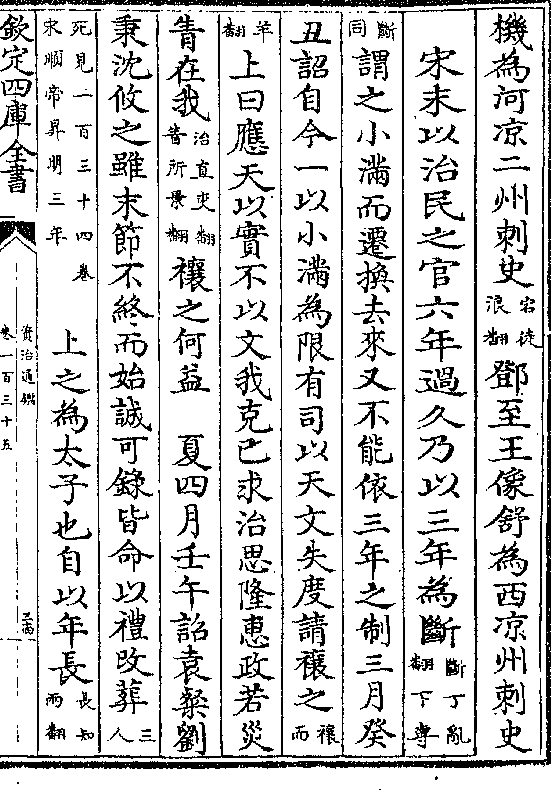 機為河凉二州刺史宕徒浪翻鄧至王像舒為西凉州刺史
宋末以治民之官六年過久乃以三年為斷斷丁亂翻下專
斷同謂之小滿而遷換去來又不能依三年之制三月癸
丑詔自今一以小滿為限有司以天文失度請禳之禳而
羊翻上曰應天以實不以文我克已求治思隆惠政若災
眚在我治直吏翻眚所景翻禳之何益　夏四月壬午詔袁粲劉
秉沈攸之雖末節不終而始誠可錄皆命以禮改葬三人
死見一百三十四卷宋順帝昇明三年　上之為太子也自以年長長知兩翻
欽定四庫全書
資治通鑑
卷一百三十五